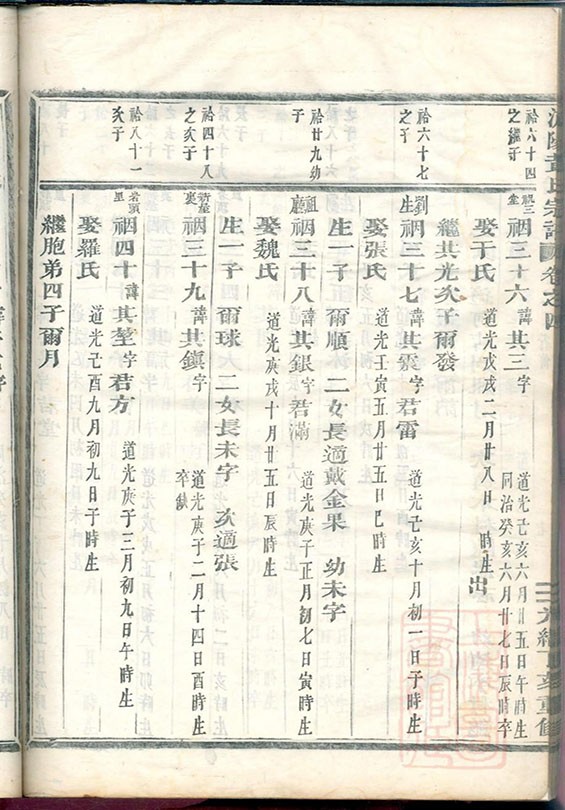 黃氏宗譜 卷之四
袷六十四
之繼子
祒三十六諱其三字
道光己亥六月廿五日午時生
同治癸亥六月廿七日辰時卒
娶于氏
道光戊戌二月廿八日 時生 出
繼其光次子爾發
袷六十七
之子
祒三十七諱其震字君雷
道光己亥十月初一日子時生
娶張氏
道光壬寅五月廿五日巳時生
生一子 爾順 二女長適戴金果 幼未字
袷廿九幼
子
祖廳
祒三十八諱其銀字君滿
道光庚子正月初七日寅時生
娶魏氏
道光庚戌十月廿五日辰時生
生一子 爾球 二女長未字 次適張
袷四十八
之次子
祒三十九諱其鎮字
道光庚子二月十四日酉時生
卒缺
袷八十一
次子
岩頭里
祒四十諱其瑩字君方
道光庚子三月初九日午時生
娶羅氏
道光己酉九月初九日子時生
繼胞弟四子爾月